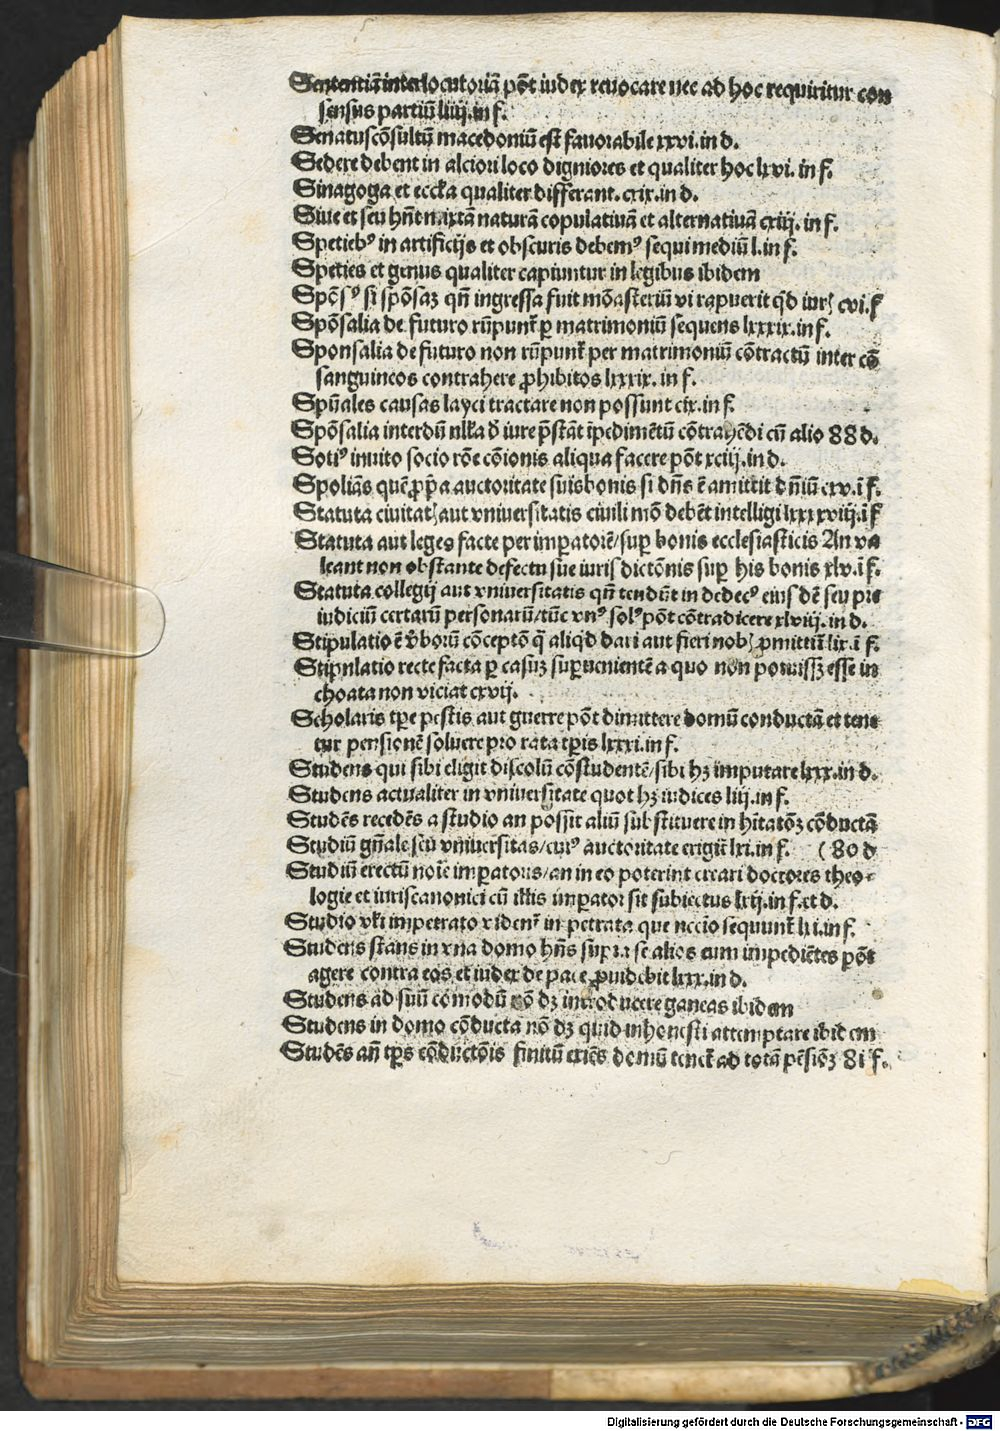 Sententiā interlocutoriā pōt iudex reuocare nec ad hoc requiritur con
sensus partiū liiij. in f.
Senatuscōsultū macedoniū est fauorabile xxvi. in d.
Sedere debent in alciori loco digniores et qualiter hoc lxvi. in f.
Sinagoga et eccƚia qualiter differant. cxix. in d.
Siue et seu hn̄t mixtā naturā copulatiuā et alternatiuā cxiij. in f.
Spetiebꝰ in artificijs et obscuris debemꝰ sequi mediū l. in f.
Speties et genus qualiter capiuntur in legibus ibidem
Spōsꝰ si spōsaꝫ qn̄ ingressa fuit mōasteriū vi rapuerit qd iurꝭ cvi. f
Spōsalia de futuro rūpunt̄ ꝑ matrimoniū sequens lxxxix. in f.
Sponsalia de futuro non rūpunt̄ per matrimoniū cōtractū inter cō
sanguineos contrahere ꝓhibitos lxxxix. in f.
Spūales causas layci tractare non possunt cix. in f.
Spōsalia interdū nƚƚa d̄ iure p̄stāt īpedimētū cōtrahēdi cū alio 88 d.
Sotiꝰ inuito socio rōe cōionis aliqua facere pōt xciij. in d.
Spoliās quē ꝓpria auctoritate suis bonis si dn̄s ē amittit dn̄iū cxv. ī f.
Statuta ciuitatꝭ aut vniuersitatis ciuili mō debēt intelligi lxxxxviij. ī f
Statuta aut leges facte per imꝑatorē/suꝑ bonis ecclesiasticis An va
leant non obstante defectu sue iurisdictōnis suꝑ his bonis xlv. ī f.
Statuta collegij aut vniuersitatis qn̄ tendūt in dedecꝰ eius dē seu pre
iudiciū certarū personarū/tūc vnꝰ solꝰ pōt cōtradicere xlviij. in d.
Stipulatio ē v̄borū cōceptō q̄ aliqd dari aut fieri nobꝭ ꝓmittit̄ lix. ī f.
Stipulatio recte facta ꝑ casuꝫ suꝑuenientē a quo non potuissꝫ esse in
choata non viciat cxvij.
Scholaris tꝑe pestis aut guerre pōt dimittere domū conductā et tene
tur pensionē soluere pro rata tꝑis lxxxi. in f.
Studens qui sibi eligit discolū cōstudentē/sibi hꝫ imputare lxxx. in d.
Studens actualiter in vniuersitate quot hꝫ iudices liij. in f.
Studēs recedēs a studio an possit aliū substituere in hitatōꝫ cōductā
Studiū gn̄ale seu vniuersitas/cuiꝰ auctoritate erigit̄ lxi. in f. (80 d
Studiū erectū noīe imꝑatoris/an in eo poterint creari doctores theo-
logie et iuriscanonici cū illis imꝑator sit subiectus lxij. in f. et d.
Studio vƚi impetrato vident̄ impetrata que nccīo sequunt̄ lxi. in f.
Studens stans in vna domo hn̄s supra se alios eum impediētes pōt
agere contra eos et iudex de pace ꝓuidebit lxxx. in d.
Studens ad suū comodū nō dꝫ introducere ganeas ibidem
Studens in domo cōducta nō dꝫ quid inhonesti attemptare ibidem
Studēs an̄ tꝑs cōductōis finitū exiēs domū tenet̄ ad totā pēsiōꝫ 81 f.
Digitalisierung gefördert durch die Deutsche Forschungsgemeinschaft - DFG